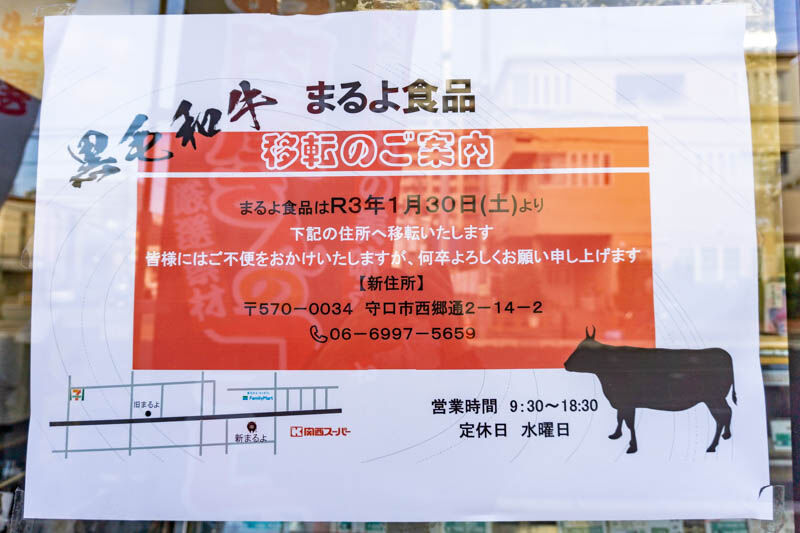 黒毛和牛 まるよ食品
移転のご案内
まるよ食品はR3年1月30日(土)より
下記の住所へ移転いたします
皆様にはご不便をおかけいたしますが、何卒よろしくお願い申し上げます
【新住所】
〒570－0034 守口市西郷通2－14－2
06－6997－5659
7
旧まるよ
FamilyMart
新まるよ
関西スーパー
営業時間 9:30～18:30
定休日 水曜日
厳選素材